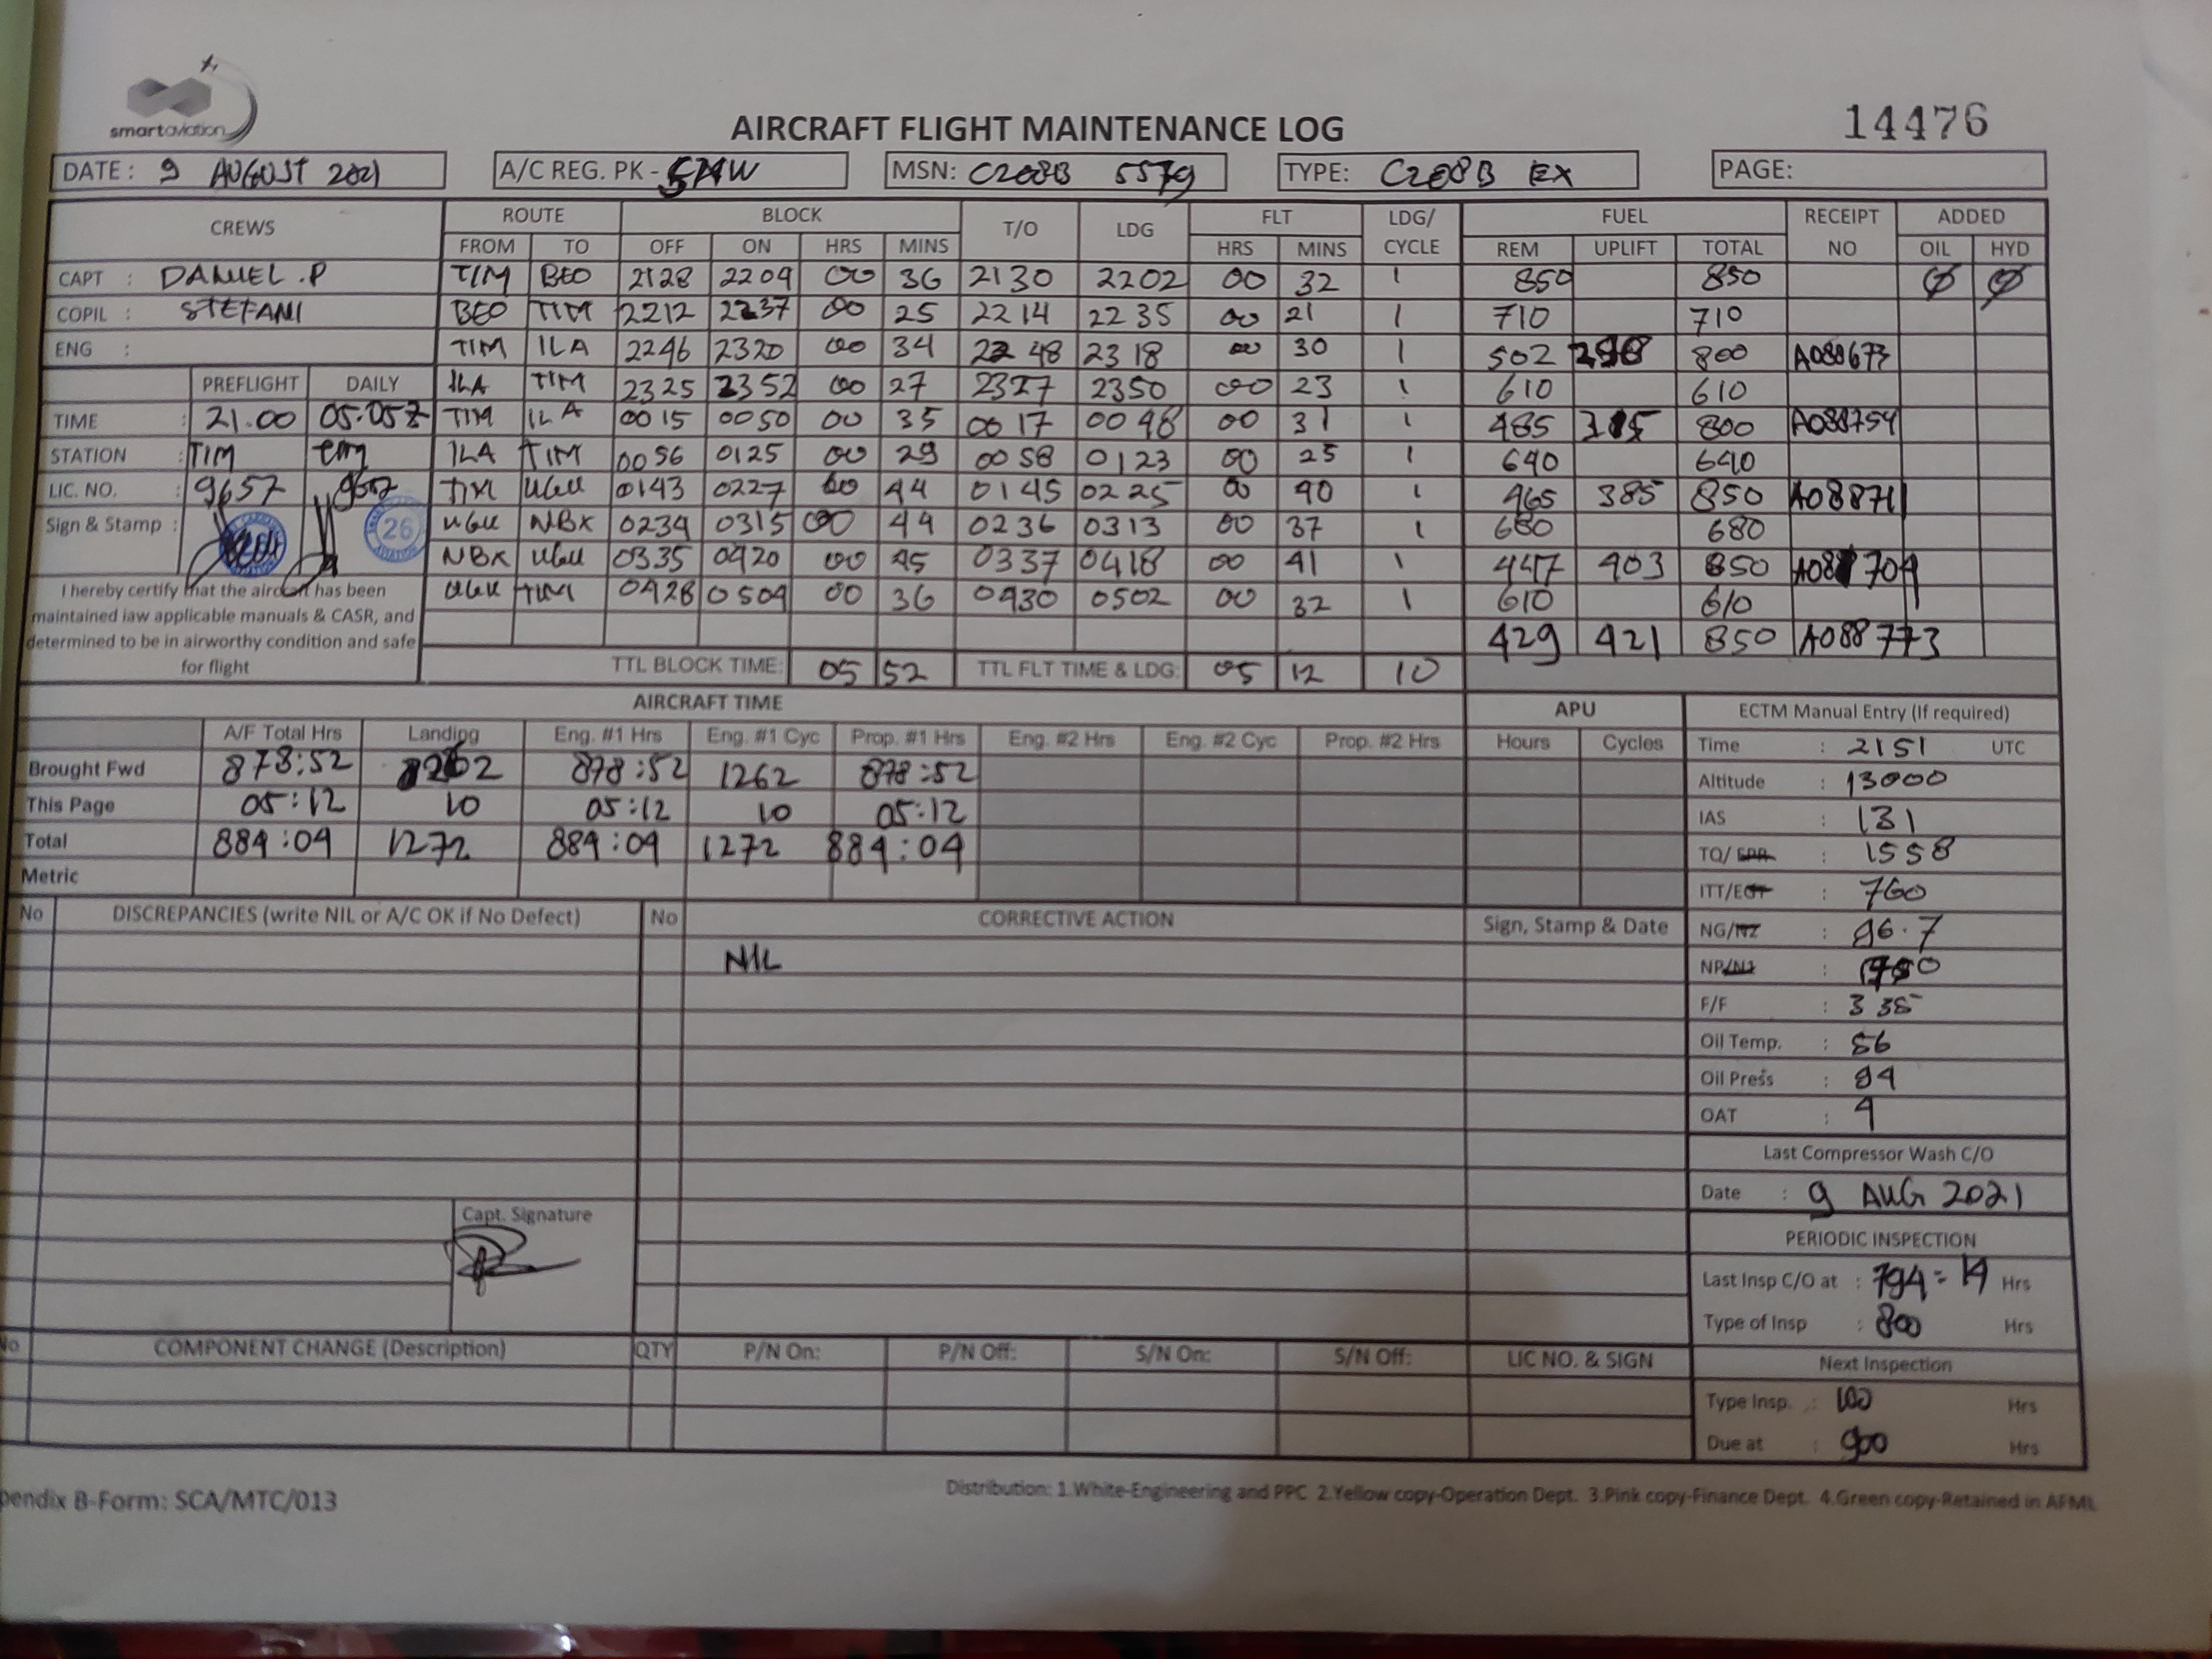 smartaviation
AIRCRAFT FLIGHT MAINTENANCE LOG
14476
DATE : 9 AUGUST 2021 A/C REG. PK - SNW MSN: C208B 5579 TYPE: C208B EX PAGE:
CREWS ROUTE BLOCK T/O LDG FLT LDG/ CYCLE FUEL RECEIPT NO ADDED
FROM TO OFF ON HRS MINS HRS MINS REM UPLIFT TOTAL OIL HYD
CAPT : DANIEL .P TIM BEO 2128 2204 00 36 2130 2202 00 32 1 850 850 Ø Ø
COPIL : STEFANI BEO TIM 2212 2237 00 25 2214 2235 00 21 1 710 710
ENG : TIM ILA 2246 2320 00 34 2248 2318 00 30 1 502 298 800 A088673
PREFLIGHT DAILY ILA TIM 2325 2352 00 27 2327 2350 00 23 1 610 610
TIME : 21.00 05.05z TIM ILA 0015 0050 00 35 0017 0048 00 31 1 485 315 800 A088754
STATION : TIM TIM ILA TIM 0056 0125 00 29 0058 0123 00 25 1 640 640
LIC. NO. : 9657 9657 TIM UGU 0143 0227 00 44 0145 0225 00 40 1 465 385 850 A088711
Sign & Stamp : 26 UGU NBX 0234 0315 00 44 0236 0313 00 37 1 680 680
NBX UGU 0335 0420 00 45 0337 0418 00 41 1 447 403 850 704
UGU TIM 0428 0504 00 36 0430 0502 00 32 1 610 610
429 421 850 A088773
I hereby certify that the aircraft has been
maintained iaw applicable manuals & CASR, and
determined to be in airworthy condition and safe
for flight
TTL BLOCK TIME: 05 52 TTL FLT TIME & LDG: 05 12 10
AIRCRAFT TIME APU ECTM Manual Entry (If required)
A/F Total Hrs Landing Eng. #1 Hrs Eng. #1 Cyc Prop. #1 Hrs Eng. #2 Hrs Eng. #2 Cyc Prop. #2 Hrs Hours Cycles
Brought Fwd 878:52 1262 878:52 1262 878:52
This Page 05:12 10 05:12 10 05:12
Total 884:04 1272 884:04 1272 884:04
Metric
Time : 2151 UTC
Altitude : 13000
IAS : 131
TQ/EPR : 1558
ITT/EGT : 760
NG/N2 : 96.7
NP/N1 : 1750
F/F : 335
Oil Temp. : 86
Oil Press : 94
OAT : 4
No DISCREPANCIES (write NIL or A/C OK if No Defect) No CORRECTIVE ACTION Sign, Stamp & Date
NIL
Last Compressor Wash C/O
Date : 9 AUG 2021
Capt. Signature
PERIODIC INSPECTION
Last Insp C/O at : 794=14 Hrs
Type of Insp : 800 Hrs
No COMPONENT CHANGE (Description) QTY P/N On: P/N Off: S/N On: S/N Off: LIC NO. & SIGN
Next Inspection
Type Insp. : 100 Hrs
Due at : 900 Hrs
pendix B-Form: SCA/MTC/013
Distribution: 1.White-Engineering and PPC 2.Yellow copy-Operation Dept. 3.Pink copy-Finance Dept. 4.Green copy-Retained in AFML